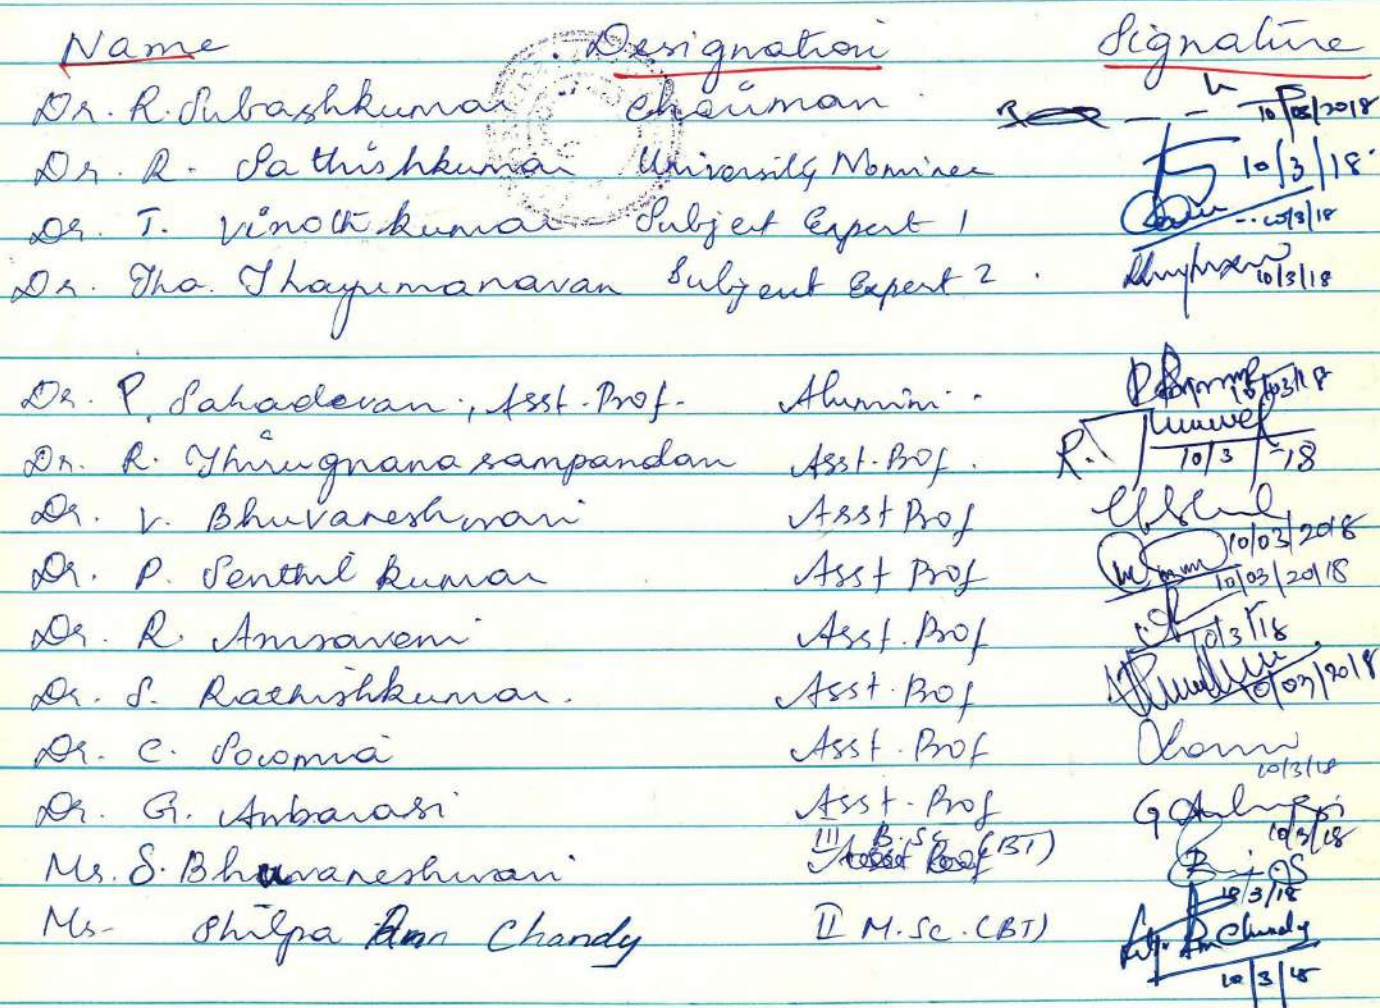 Name Designation Signature
Dr. R. Subashkumar Chairman 10/03/2018
Dr. R. Sathishkumar University Nominee 10/3/18
Dr. T. Vinoth kumar Subject Expert 1 10/3/18
Dr. Tha. Thayumanavan Subject Expert 2 10/3/18
Dr. P. Sahadevan, Asst. Prof. Alumini 10/03/18
Dr. R. Thirugnanasampandan Asst. Prof. R. 10/3/18
Dr. V. Bhuvaneshwari Asst Prof 10/03/2018
Dr. P. Senthil kumar Asst Prof 10/03/2018
Dr. R. Amsaveni Asst. Prof 10/3/18
Dr. S. Rathishkumar. Asst. Prof 10/03/2018
Dr. C. Sowmia Asst. Prof 10/3/18
Dr. G. Anbarasi Asst. Prof 10/3/18
Ms. S. Bhuvaneshwari III B.Sc (BT) 10/3/18
Ms. Shilpa Ann Chandy II M.Sc. (BT) Ann Chandy 10/3/18